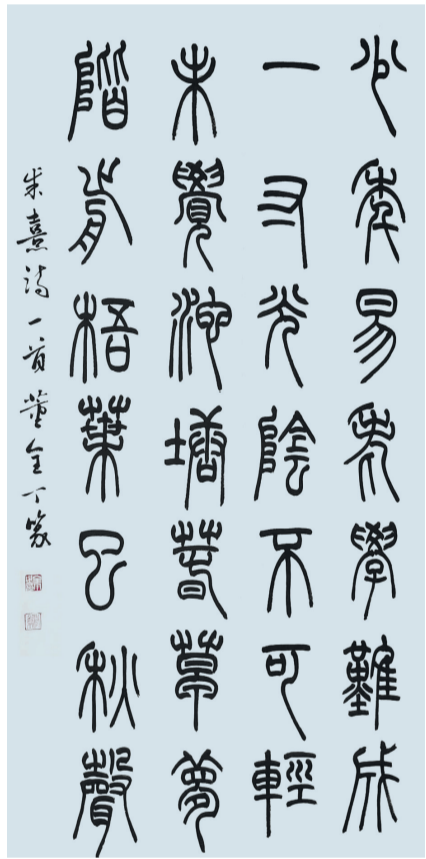 少年易老學難成
一寸光陰不可輕
未覺池塘春草夢
階前梧葉已秋聲
朱熹詩一首董全丁篆